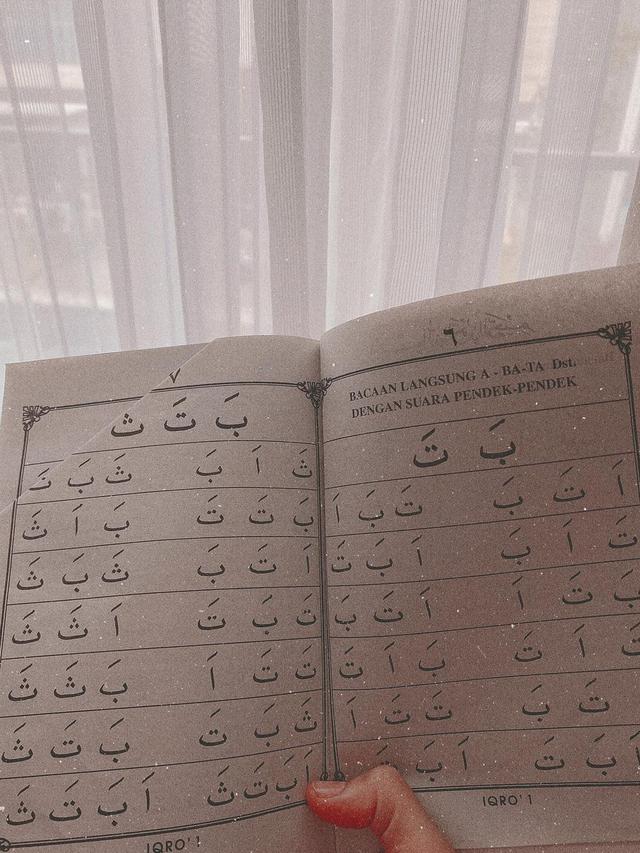 ٦
BACAAN LANGSUNG A - BA-TA Dst.
DENGAN SUARA PENDEK-PENDEK
بَ تَ
اَ تَ بَ تَ بَ اَ
تَ اَ بَ اَ بَ تَ
بَ تَ اَ اَ تَ بَ
تَ اَ تَ بَ اَ تَ
تَ بَ تَ تَ اَ
اَ بَ تَ اَ بَ تَ
IQRO' 1
٧
بَ تَ ثَ
ثَ اَ بَ ثَ بَ تَ
بَ تَ تَ بَ اَ ثَ
اَ تَ بَ ثَ بَ ثَ
تَ بَ تَ اَ ثَ ثَ
تَ تَ اَ بَ ثَ ثَ
ثَ بَ تَ بَ تَ ثَ
اَ بَ تَ ثَ اَ بَ تَ ثَ
IQRO' 1